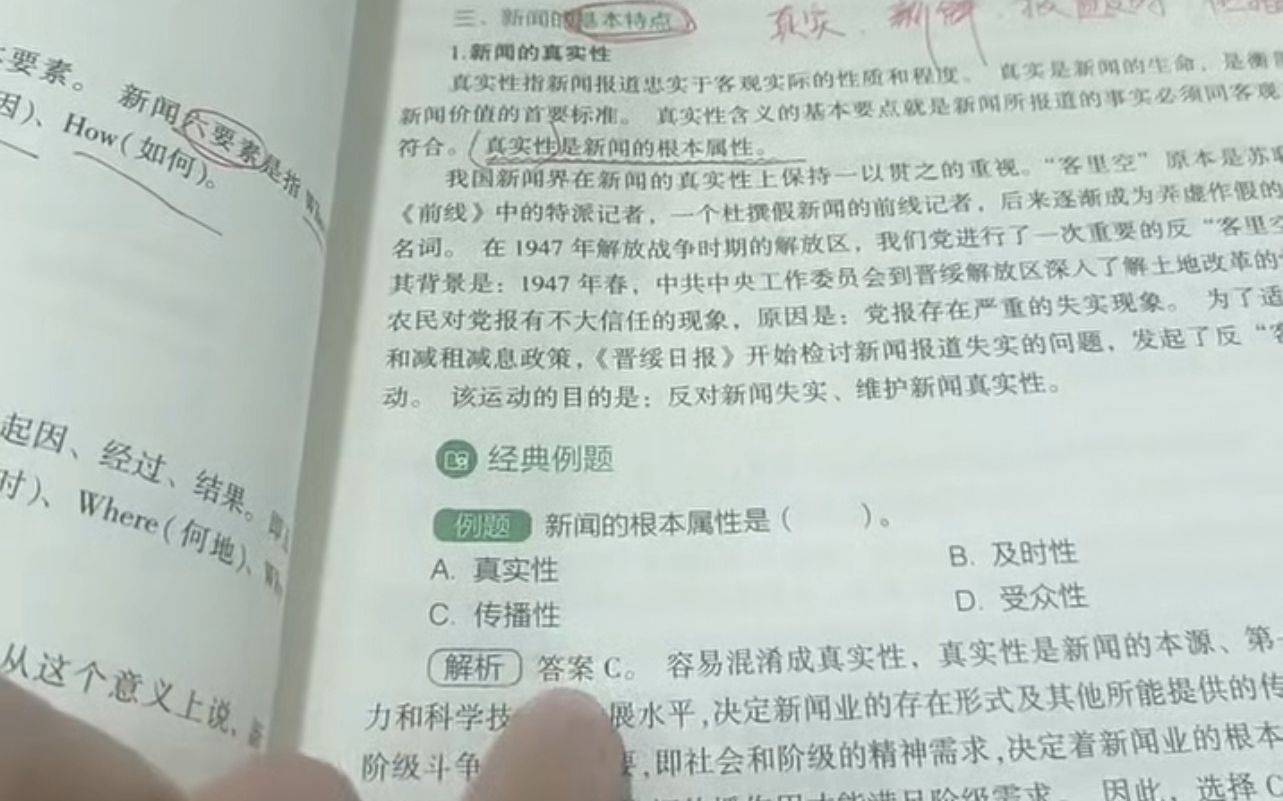 要素。 新闻六要素是指
因)、How(如何)。
起因、经过、结果。
时)、Where(何地)、
从这个意义上说，
三、新闻的基本特点
真实、新鲜、
1.新闻的真实性
真实性指新闻报道忠实于客观实际的性质和程度。 真实是新闻的生命，是衡
新闻价值的首要标准。 真实性含义的基本要点就是新闻所报道的事实必须同客观
符合。 真实性是新闻的根本属性。
我国新闻界在新闻的真实性上保持一以贯之的重视。“客里空” 原本是苏
《前线》中的特派记者，一个杜撰假新闻的前线记者，后来逐渐成为弄虚作假的
名词。 在 1947 年解放战争时期的解放区，我们党进行了一次重要的反 “客里空
其背景是：1947 年春，中共中央工作委员会到晋绥解放区深入了解土地改革的
农民对党报有不大信任的现象，原因是：党报存在严重的失实现象。 为了适
和减租减息政策，《晋绥日报》开始检讨新闻报道失实的问题，发起了反 “客
动。 该运动的目的是：反对新闻失实、维护新闻真实性。
经典例题
例题 新闻的根本属性是（ ）。
A. 真实性 B. 及时性
C. 传播性 D. 受众性
解析 答案 C。 容易混淆成真实性，真实性是新闻的本源、第
力和科学技 展水平，决定新闻业的存在形式及其他所能提供的传
阶级斗争 要，即社会和阶级的精神需求，决定着新闻业的根本
因此，选择 C